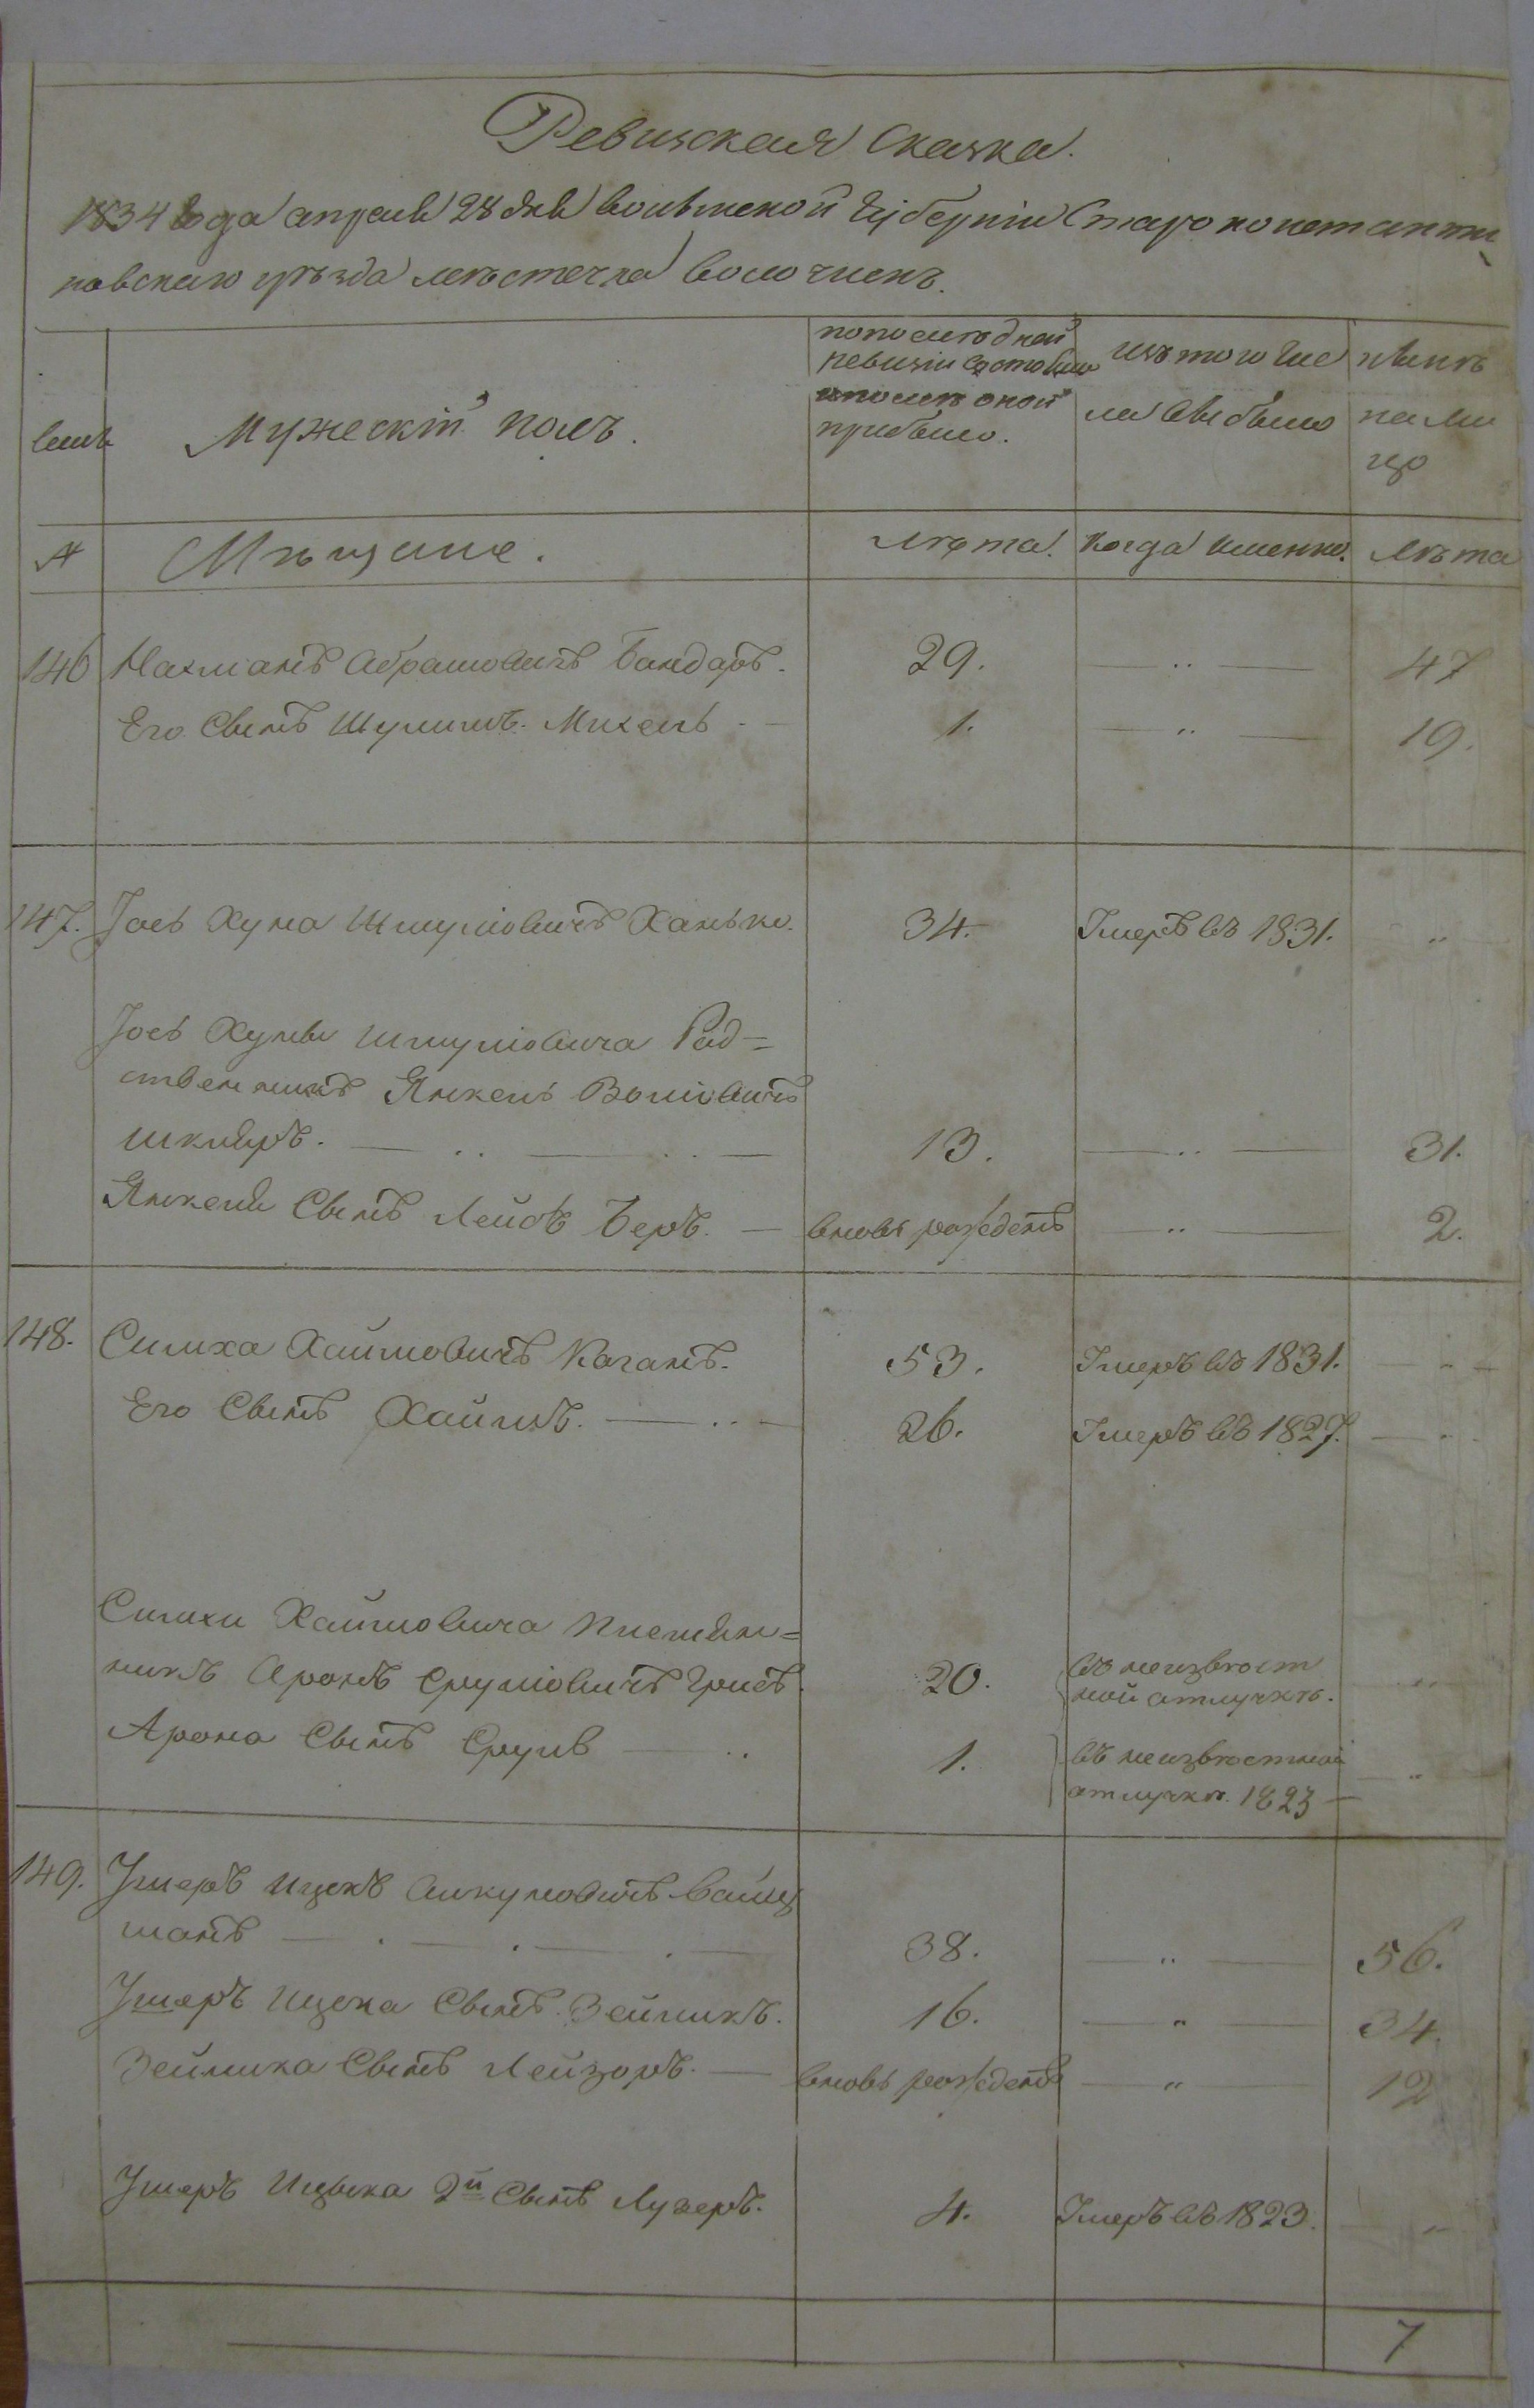 Ревизская Сказка.
1834 года апреля 28 дня волынской Губернии Староконстанти
новскаго уезда местечка волочискъ.
попоследней
ревизии состояло
ипосле оной
прибыло.
изъ того чис
ла выбыло
ныне
на ли
цо
семьи
Мужескій полъ.
№ Мещане. Лета. когда именно. Лета
146 Нахманъ Абрамовичъ Бандаръ. 29. — „ — 47
Его Сынъ Шулимъ Михель 1. — „ — 19.
147. Іось Хуна Шмуліовичъ Ханько. 34. Умеръ въ 1831. „
Іось Хуны Шмуліовича Род=
ственникъ Янкель Воліовичъ
шкляръ. 13. — „ — 31.
Янкеля Сынъ Лейбъ Беръ. — вновь рожденъ — „ — 2.
148. Симха Хаимовичъ Каганъ. 53. Умеръ въ 1831. — „ —
Его Сынъ Хаимъ. 26. Умеръ въ 1827. — „
Симхи Хаймовича племян=
никъ Аронъ Сруліовичъ 20. въ неизвест
ной отлучке. „
Арона Сынъ Сруль — „ 1. въ неизвестной
отлучке. 1823 — „
149. Умеръ Ицекъ вайц
манъ 38. — „ — 56.
Умеръ Ицека Сынъ Зейликъ. 16. — „ — 34.
Зейлика Сынъ Лейзоръ. — вновь рожденъ — „ — 12
Умеръ Ицыка 2й Сынъ Лузеръ. 4. Умеръ въ 1823. — „
7